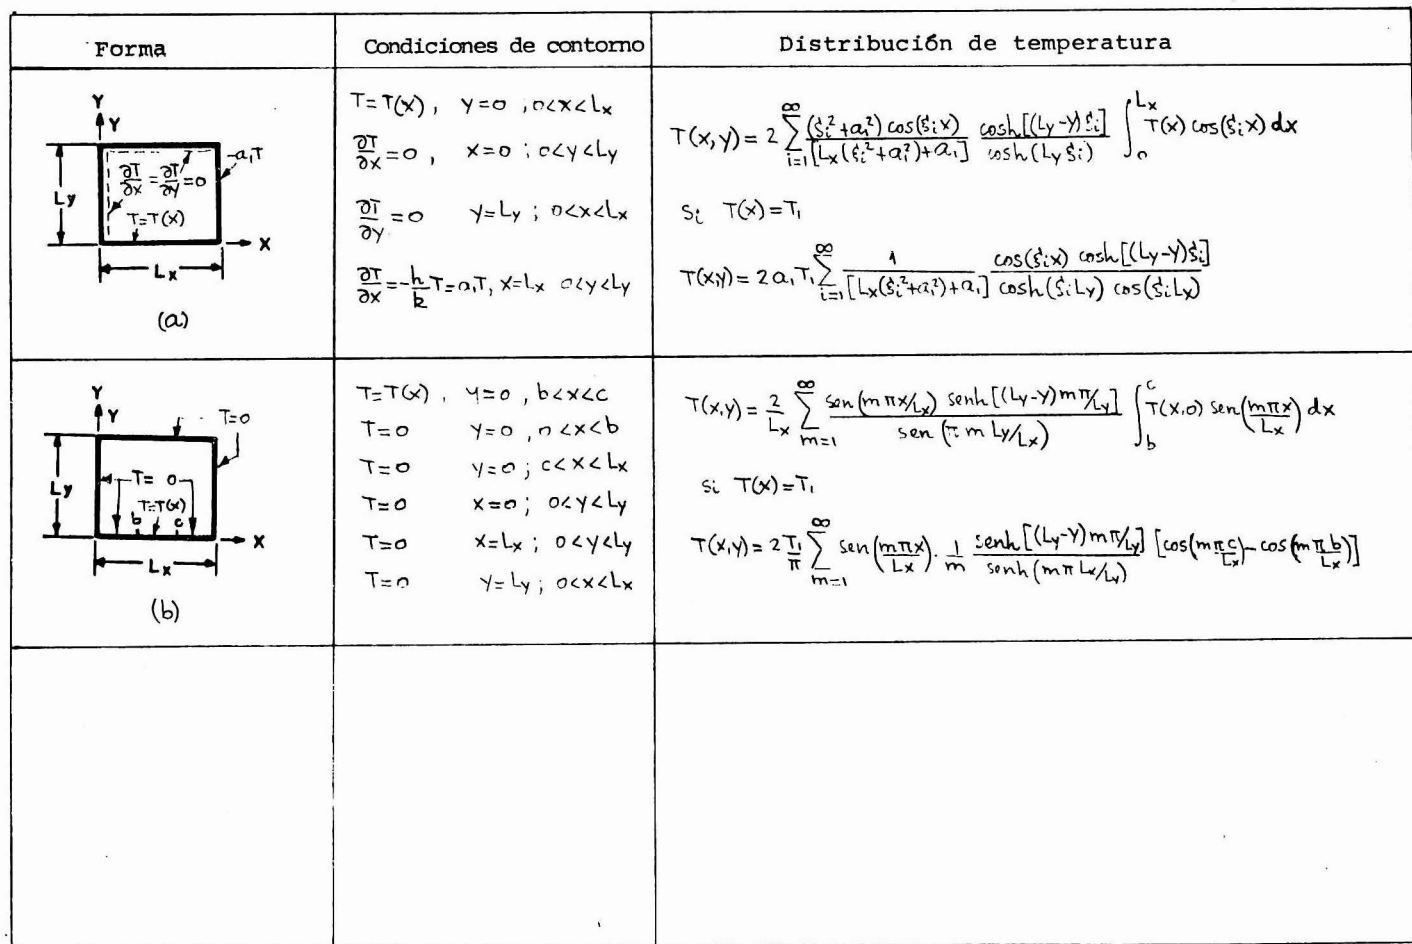 Forma
Condiciones de contorno
Distribución de temperatura
Y
Y
a₁T
∂T/∂x = ∂T/∂y = 0
Ly
T=T(x)
X
Lx
(a)
T=T(x), y=0 ; 0<x<Lx
∂T/∂x = 0, x=0 ; 0<y<Ly
∂T/∂y = 0 y=Ly ; 0<x<Lx
∂T/∂x = -h/k T = a₁T, x=Lx 0<y<Ly
T(x,y) = 2 ∑_{i=1}^{∞} (ξi²+a₁²) cos(ξix) / [Lx(ξi²+a₁²)+a₁] cosh[(Ly-y)ξi] / cosh(Ly ξi) ∫_0^{Lx} T(x) cos(ξix) dx
Si T(x)=T₁
T(x,y) = 2a₁T₁ ∑_{i=1}^{∞} 1 / [Lx(ξi²+a₁²)+a₁] cos(ξix) cosh[(Ly-y)ξi] / cosh(ξiLy) cos(ξiLx)
Y
Y
T=0
Ly
T= 0
T=T(x)
b c
X
Lx
(b)
T=T(x), y=0, b<x<c
T=0 y=0, 0<x<b
T=0 y=0; c<x<Lx
T=0 x=0; 0<y<Ly
T=0 x=Lx; 0<y<Ly
T=0 y=Ly; 0<x<Lx
T(x,y) = 2/Lx ∑_{m=1}^{∞} sen(mπx/Lx) senh[(Ly-y)mπ/Ly] / sen(πm Ly/Lx) ∫_b^c T(x,0) sen(mπx/Lx) dx
si T(x)=T₁
T(x,y) = 2 T₁/π ∑_{m=1}^{∞} sen(mπx/Lx) · 1/m senh[(Ly-y)mπ/Ly] / senh(mπ Lx/Ly) [cos(mπc/Lx) - cos(mπb/Lx)]